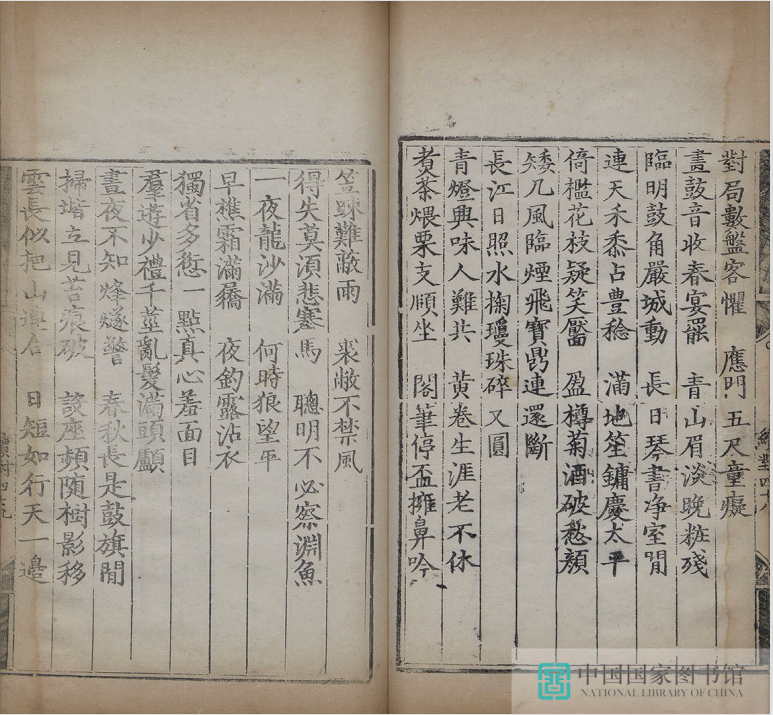 對局數盤客懼　應門五尺童癡
畫鼓音收春宴罷　青山眉淡晚粧殘
臨明鼓角嚴城動　長日琴書净室閒
連天禾黍占豊稔　滿地笙鏞慶太平
倚檻花枝疑笑靨　盈樽菊酒破愁顏
矮几風臨煙飛寶鼎連還斷
長江日照水掬瓊珠碎又圓
青燈興味人難共　黄卷生涯老不休
煑茶煨栗支頤坐　閣筆停盃擁鼻吟
笠踈難蔽雨　裘敝不禁風
得失莫湏悲塞馬　聰明不必察淵魚
一夜龍沙滿　何時狼望平
早樵霜滿屩　夜釣露沾衣
獨省多愆一點真心羞面目
羣遊少禮千莖亂髮滿頭顱
晝夜不知烽燧警　春秋長是鼓旗閒
掃堦立見苔痕破　談座頻随樹影移
雲長似把山邉　日短如行天一邉
中国国家图书馆
NATIONAL LIBRARY OF CHINA